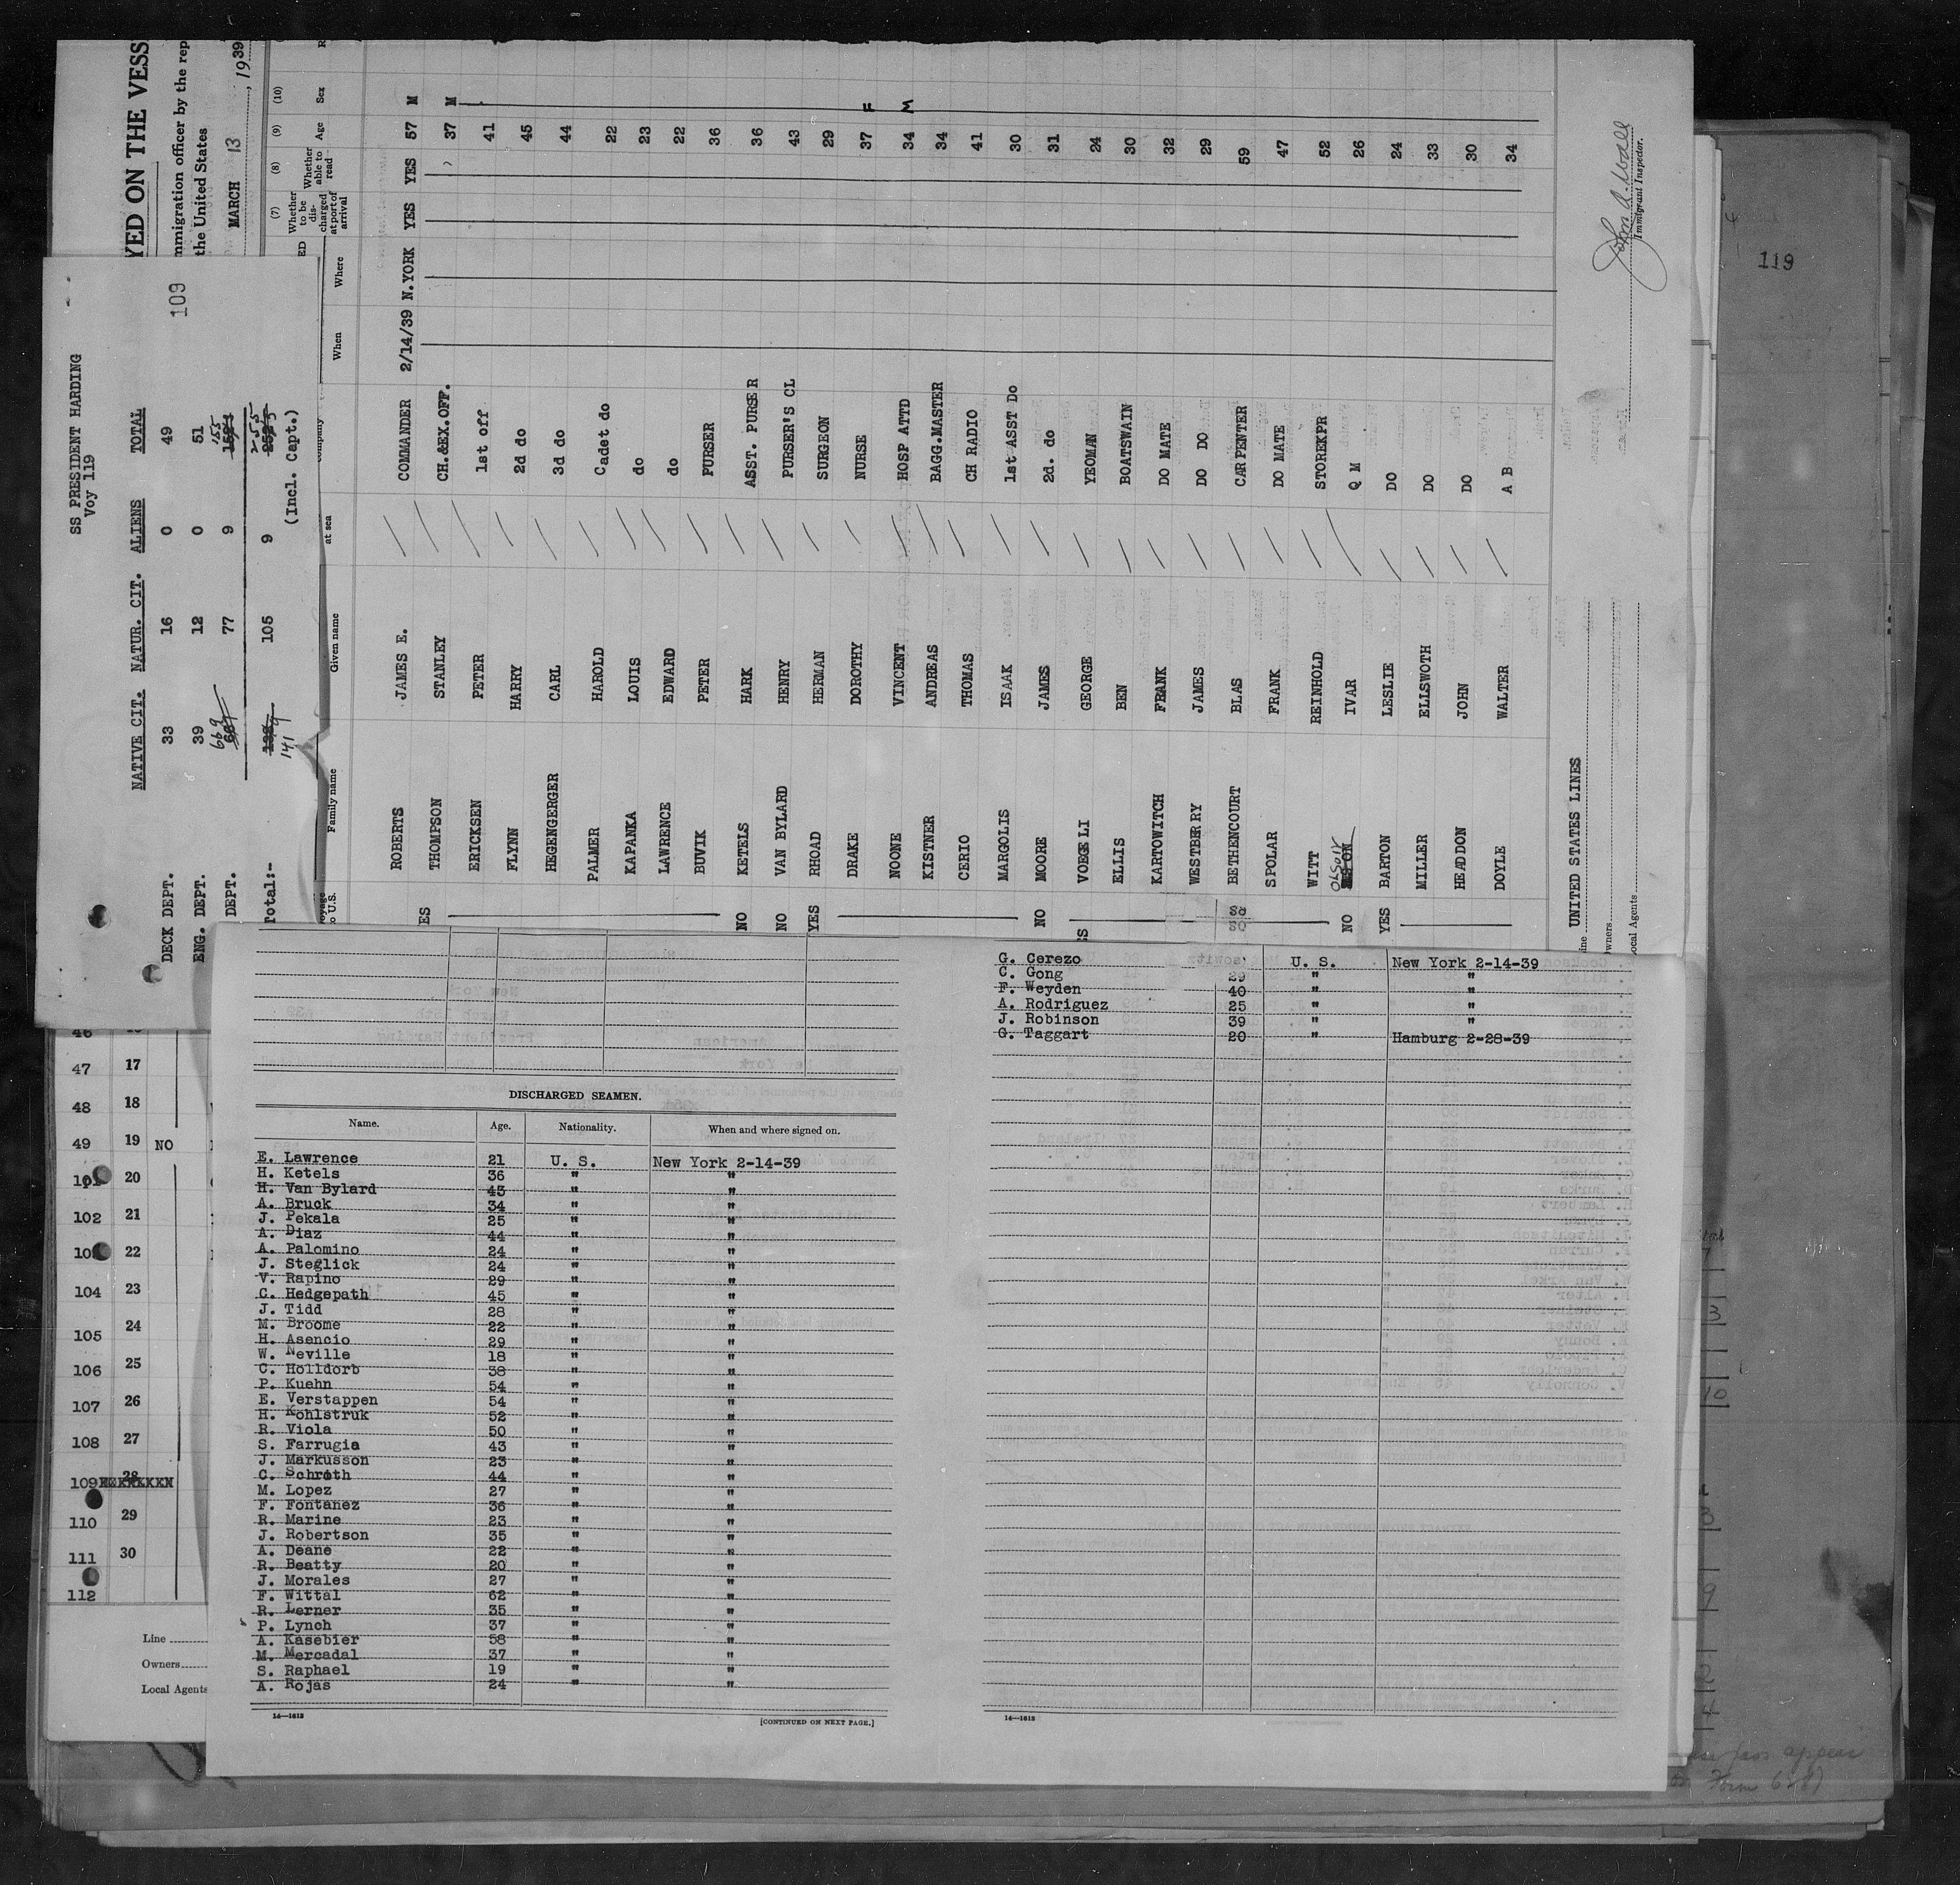 YED ON THE VESS
mmigration officer by the rep
the United States
MARCH 13, 1939
(7) (8) (9) (10)
ED Whether to be discharged at port of arrival Whether able to read Age Sex R
Family name Given name at sea company When Where
ROBERTS JAMES E. COMMANDER 2/14/39 N.YORK YES YES 57 M
THOMPSON STANLEY CH.&EX.OFF. 37 M
ERICKSEN PETER 1st off 41
FLYNN HARRY 2d do 45
HEGENGERGER CARL 3d do 44
PALMER HAROLD Cadet do 22
KAPANKA LOUIS do 23
LAWRENCE EDWARD do 22
BUVIK PETER PURSER 36
KETELS HARK ASST. PURSER 36
VAN BYLARD HENRY PURSER'S CL 43
RHOAD HERMAN SURGEON 29
DRAKE DOROTHY NURSE 37 F
NOONE VINCENT HOSP ATTD 34 M
KISTNER ANDREAS BAGG.MASTER 34
CERIO THOMAS CH RADIO 41
MARGOLIS ISAAK 1st ASST Do 30
MOORE JAMES 2d. do 31
VOEGELI GEORGE YEOMAN 24
ELLIS BEN BOATSWAIN 30
KARTOWITCH FRANK DO MATE 32
WESTBERRY JAMES DO DO 29
BETHENCOURT BLAS CARPENTER 59
SPOLAR FRANK DO MATE 47
WITT REINHOLD STOREKPR 52
OLSON IVAR Q M 26
BARTON LESLIE DO 24
MILLER ELLSWOTH DO 33
HEADDON JOHN DO 30
DOYLE WALTER A B 34
ES
NO
NO
YES
NO
NO
YES
UNITED STATES LINES
Local Agents
John A. Wall
Immigrant Inspector.
SS PRESIDENT HARDING
Voy 119
109
NATIVE CIT. NATUR. CIT. ALIENS TOTAL
DECK DEPT. 33 16 0 49
ENG. DEPT. 39 12 0 51
DEPT. 77 9 155
Total:- 141 105 9 255
(Incl. Capt.)
119
46
47 17
48 18
49 19 NO
20
102 21
22
104 23
105 24
106 25
107 26
108 27
109 28
110 29
111 30
112
Line
Owners
Local Agents
DISCHARGED SEAMEN.
Name. Age. Nationality. When and where signed on.
E. Lawrence 21 U. S. New York 2-14-39
H. Ketels 36 " "
H. Van Bylard 43 " "
A. Bruck 34 " "
J. Pekala 25 " "
A. Diaz 44 " "
A. Palomino 24 " "
J. Steglick 24 " "
V. Rapino 29 " "
C. Hedgepath 45 " "
J. Tidd 28 " "
M. Broome 22 " "
H. Asencio 29 " "
W. Neville 18 " "
C. Holldorb 38 " "
P. Kuehn 54 " "
E. Verstappen 54 " "
H. Kohlstruk 52 " "
R. Viola 50 " "
S. Farrugia 43 " "
J. Markusson 23 " "
C. Schroth 44 " "
M. Lopez 27 " "
F. Fontanez 36 " "
R. Marine 23 " "
J. Robertson 35 " "
A. Deane 22 " "
R. Beatty 20 " "
J. Morales 27 " "
F. Wittal 62 " "
R. Lerner 35 " "
P. Lynch 37 " "
A. Kasebier 58 " "
M. Mercadal 37 " "
S. Raphael 19 " "
A. Rojas 24 " "
14—1613
[CONTINUED ON NEXT PAGE.]
G. Cerezo U. S. New York 2-14-39
C. Gong 29 " "
F. Weyden 40 " "
A. Rodriguez 25 " "
J. Robinson 39 " "
G. Taggart 20 " Hamburg 2-28-39
14—1613
appear
Form 6